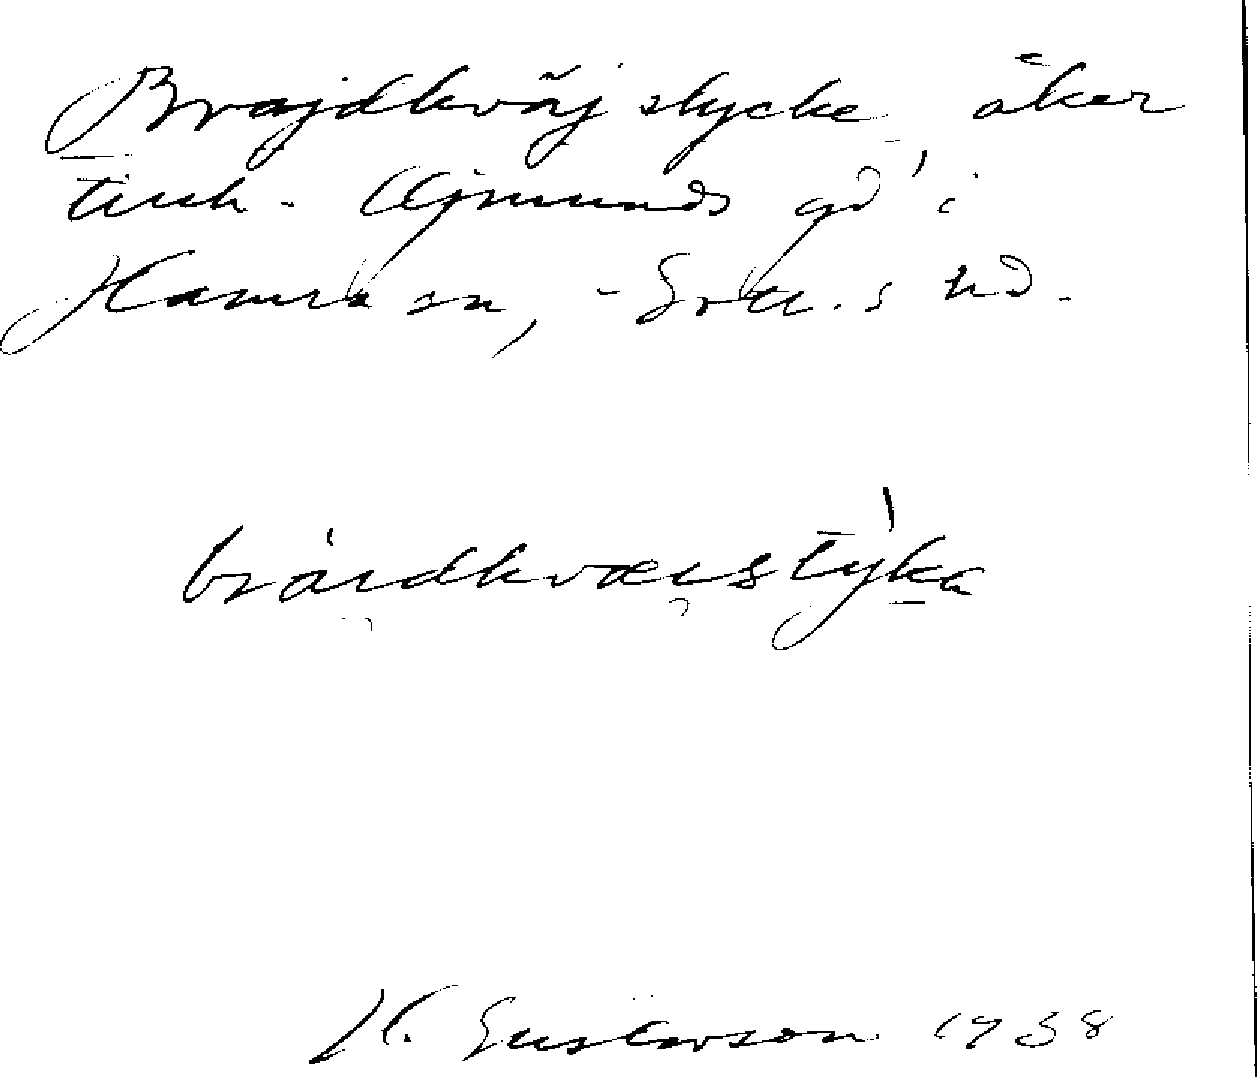 Brajdkväjstycke åker
tillh. Ajmunds gd i
Hamra sn, - Gotl. s hd.
bràidkvæistyka
H. Gustavson 1938